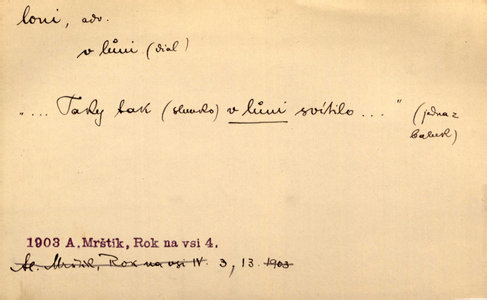 loni, adv.
v lůni (dial)
"... Taky tak (slunko) v lůni svítilo ..." (jedna z
babek)
1903 A. Mrštík, Rok na vsi 4.
Al. Mrštík, Rok na vsi IV. 3, 13. 1903